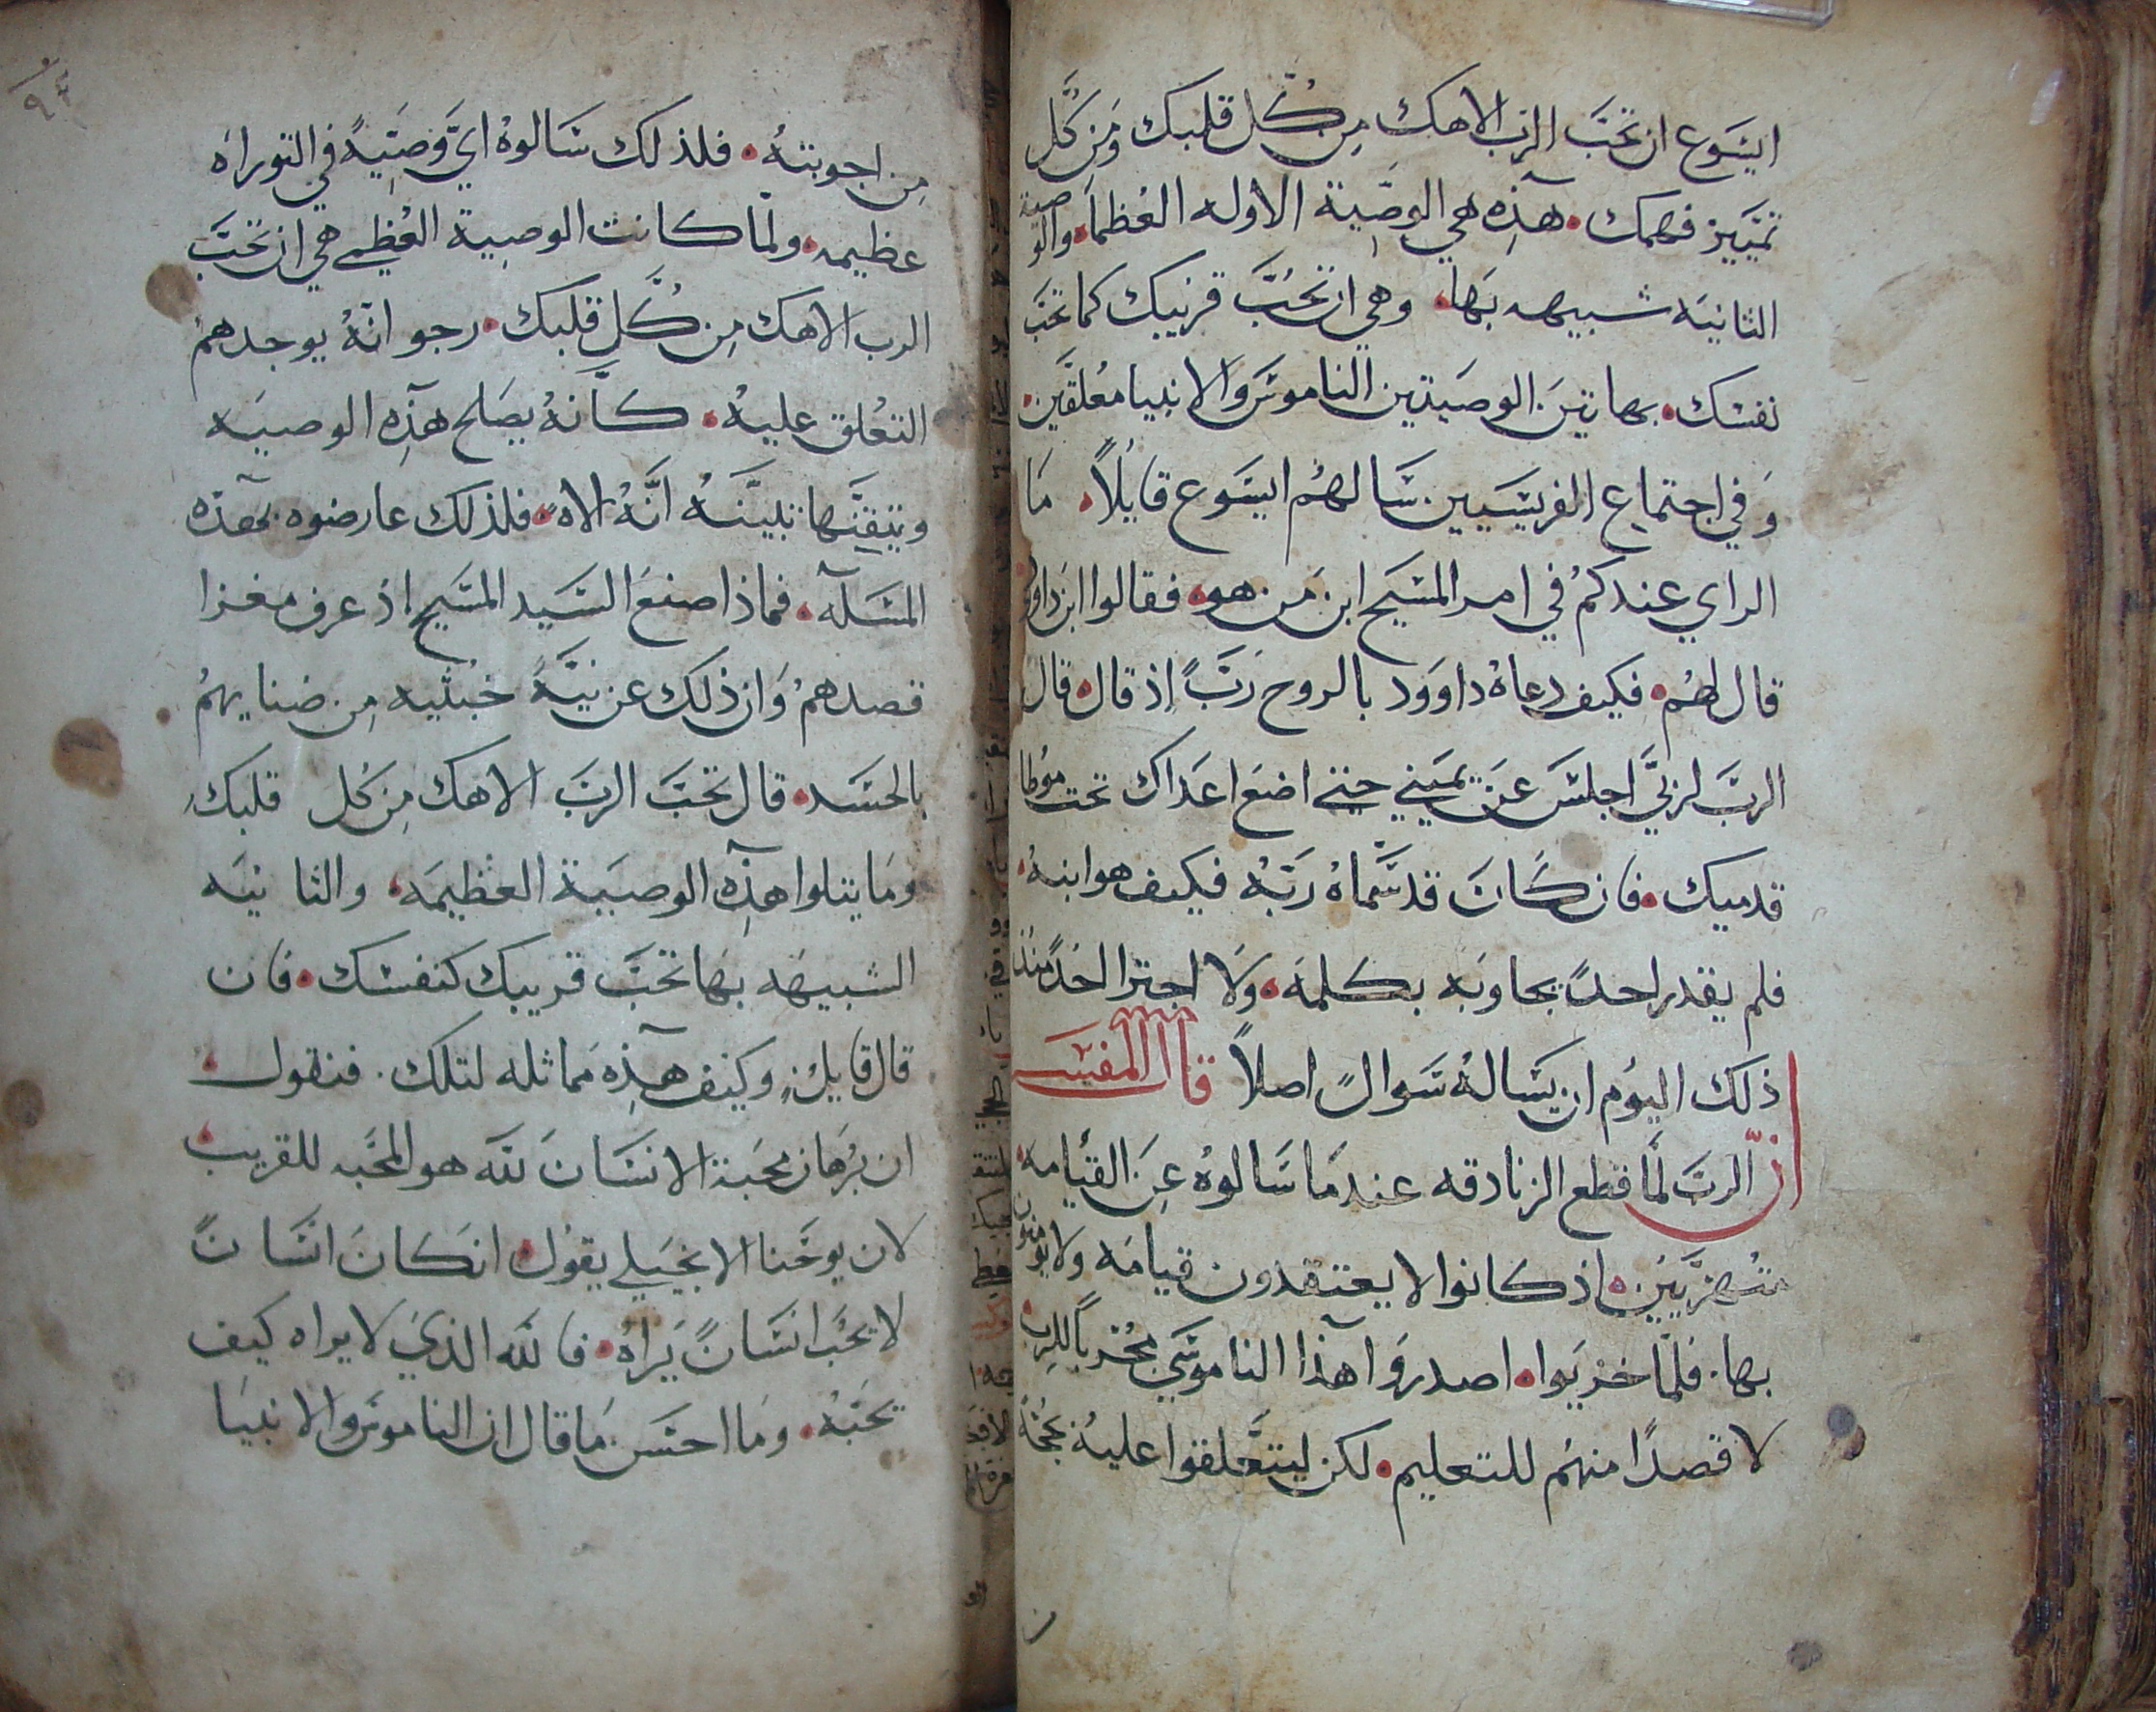 ايسوع ان تحب الرب الاهك من كل قلبك ومن كل
تمييز فهمك هذه هي الوصية الاوله العظما والوصية
الثانيه شبيهه بها وهي ان تحب قريبك كما تحب
نفسك بهاتين الوصيتين الناموس والانبيا معلقين
وفي اجتماع الفريسيين سالهم ايسوع قايلاً ما
الراي عندكم في امر المسيح ابن من هو فقالوا ابن داوود
قال لهم فكيف دعاه داوود بالروح رباً اذ قال قال
الرب لربي اجلس عن يميني حتى اضع اعداك تحت موطا
قدميك فان كان قد سماه ربه فكيف هو ابنه
فلم يقدر احداً يجاوبه بكلمه ولا اجترا احداً منذ
ذلك اليوم ان يساله سوالً اصلاً قال المفسر
ان الرب لما قطع الزنادقه عندما سالوه عن القيامه
متهزيين اذ كانوا لا يعتقدون قيامه ولا يومنون
بها فلما خزيوا اصدروا هذا الناموسي مجرباً للرب
لا قصداً منهم للتعليم لكن ليتعلقوا عليه بحجة
من اجوبته فلذلك سالوه اي وصيةً في التوراه
عظيمه ولما كانت الوصية العظمي هي ان تحب
الرب الاهك من كل قلبك رجو انه يوجدهم
التعلق عليه كانه يصلح هذه الوصيه
ويتيقنها تبينه انه الاه فلذلك عارضوه بهذه
المسله فماذا صنع السيد المسيح اذ عرف مغزا
قصدهم وان ذلك عن نيةً خبثيه من ضنايهم
بالحسد قال تحب الرب الاهك من كل قلبك
وما يتلوا هذه الوصية العظيمه والثانيه
الشبيهه بها تحب قريبك كنفسك فان
قال قايلٌ وكيف هذه مماثله لتلك فنقول
ان برهان محبة الانسان لله هو المحبه للقريب
لان يوحنا الانجيلي يقول ان كان انسانً
لا يحب انسانً يراه فالله الذي لا يراه كيف
يحبه وما احسن ما قال ان الناموس والانبيا